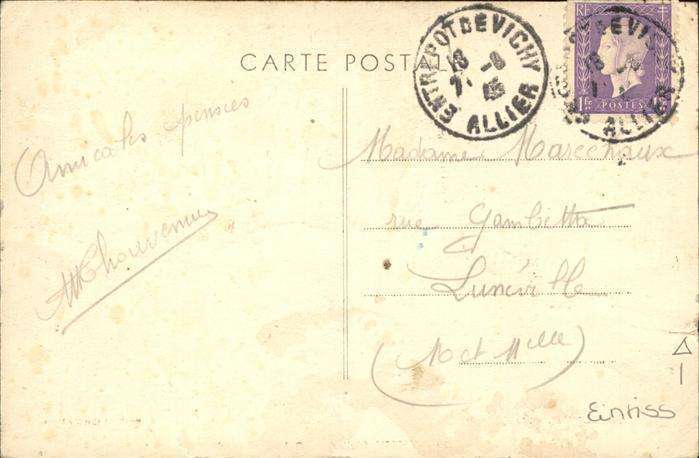 CARTE POSTALE
ENTREPOT DE VICHY
18 -8
45
ALLIER
RF
1F
POSTES
ALLIER
Amicales pensées
Madame Maréchaux
rue Gambetta
Lunéville
(M et Melle)
Einriss